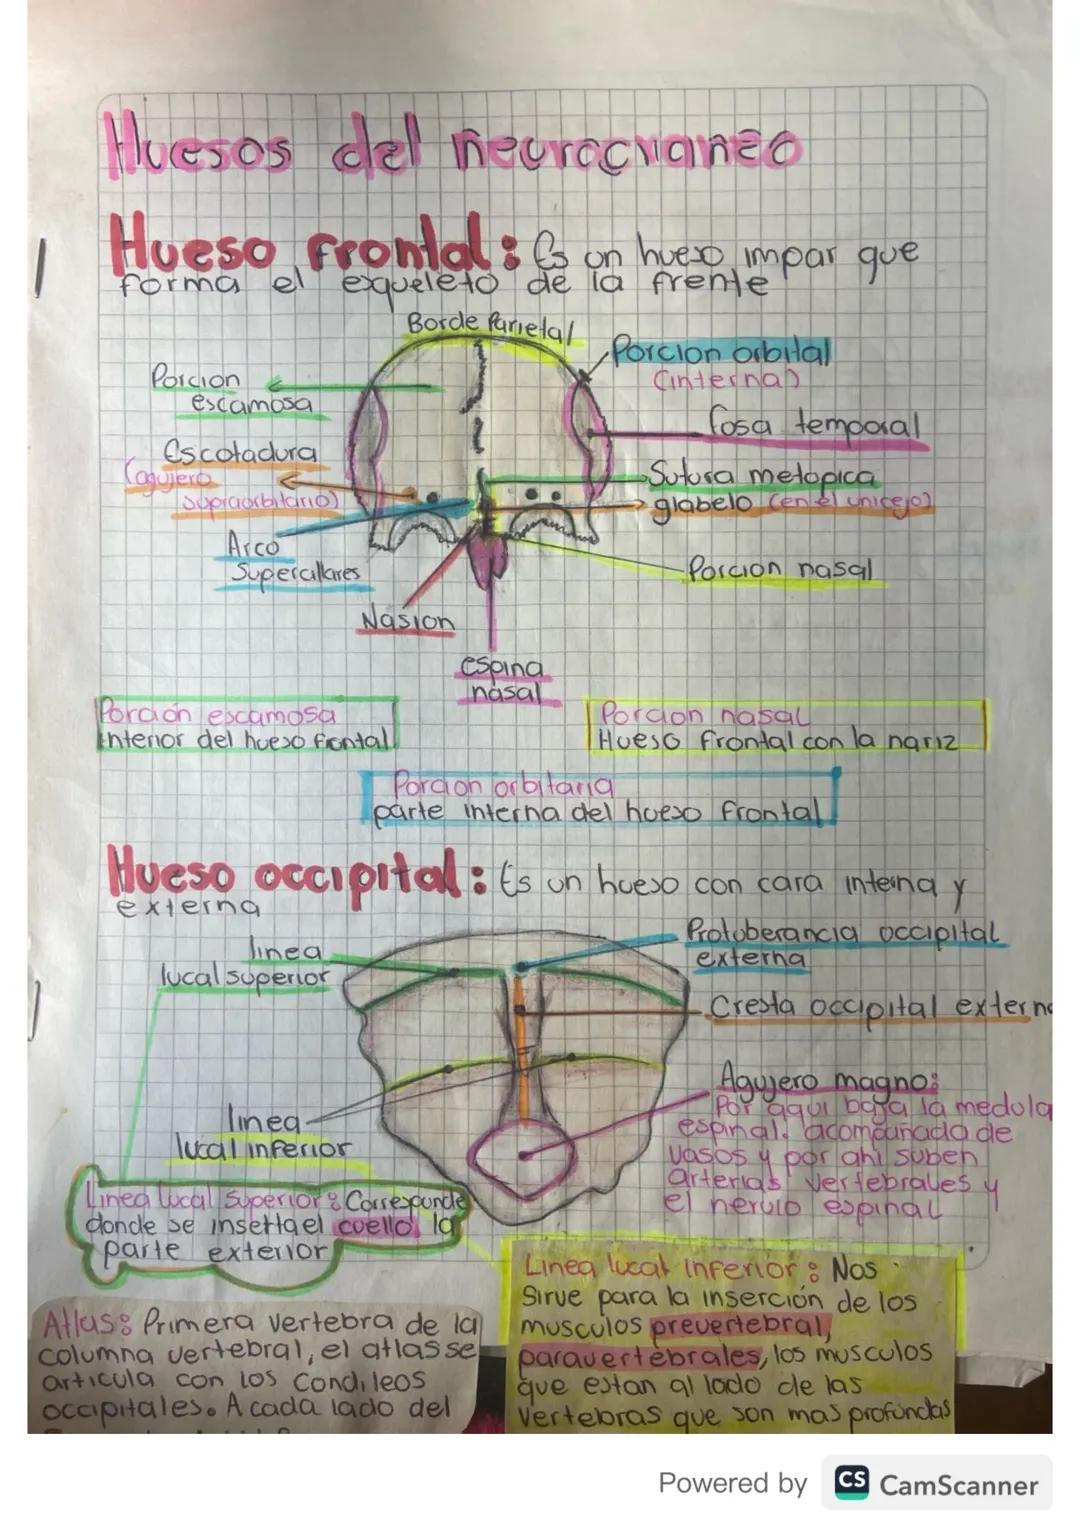 Huesos del neurocraneo
Hueso frontal: Es un hueso impar que
forma el esqueleto de la frente
Borde Parietal
Porcion orbital
(interna)
Porcion
escamosa
fosa temporal
Escotadura
(agujero
supraorbitario)
Sutura metopica
glabelo (en el unicejo)
Arco
Supercillares
Porcion nasal
Nasion
espina
nasal
Porción escamosa
Interior del hueso frontal
Porcion nasal
Hueso frontal con la nariz
Porcion orbitaria
parte interna del hueso frontal
Hueso occipital: Es un hueso con cara interna y
externa
linea
lucal superior
Protuberancia occipital
externa
Cresta occipital externa
Agujero magno:
Por aqui baja la medula
espinal, acompañada de
vasos y por ahi suben
arterias vertebrales y
el nervio espinal
linea
lucal inferior
Linea lucal superior: Corresponde
donde se insertael cuello la
parte exterior
Linea lucal inferior: Nos
sirve para la inserción de los
musculos prevertebral,
paravertebrales, los musculos
que estan al lado de las
vertebras que son mas profundas
Atlas: Primera vertebra de la
columna vertebral, el atlas se
articula con los condileos
occipitales. A cada lado del
Powered by CS CamScanner